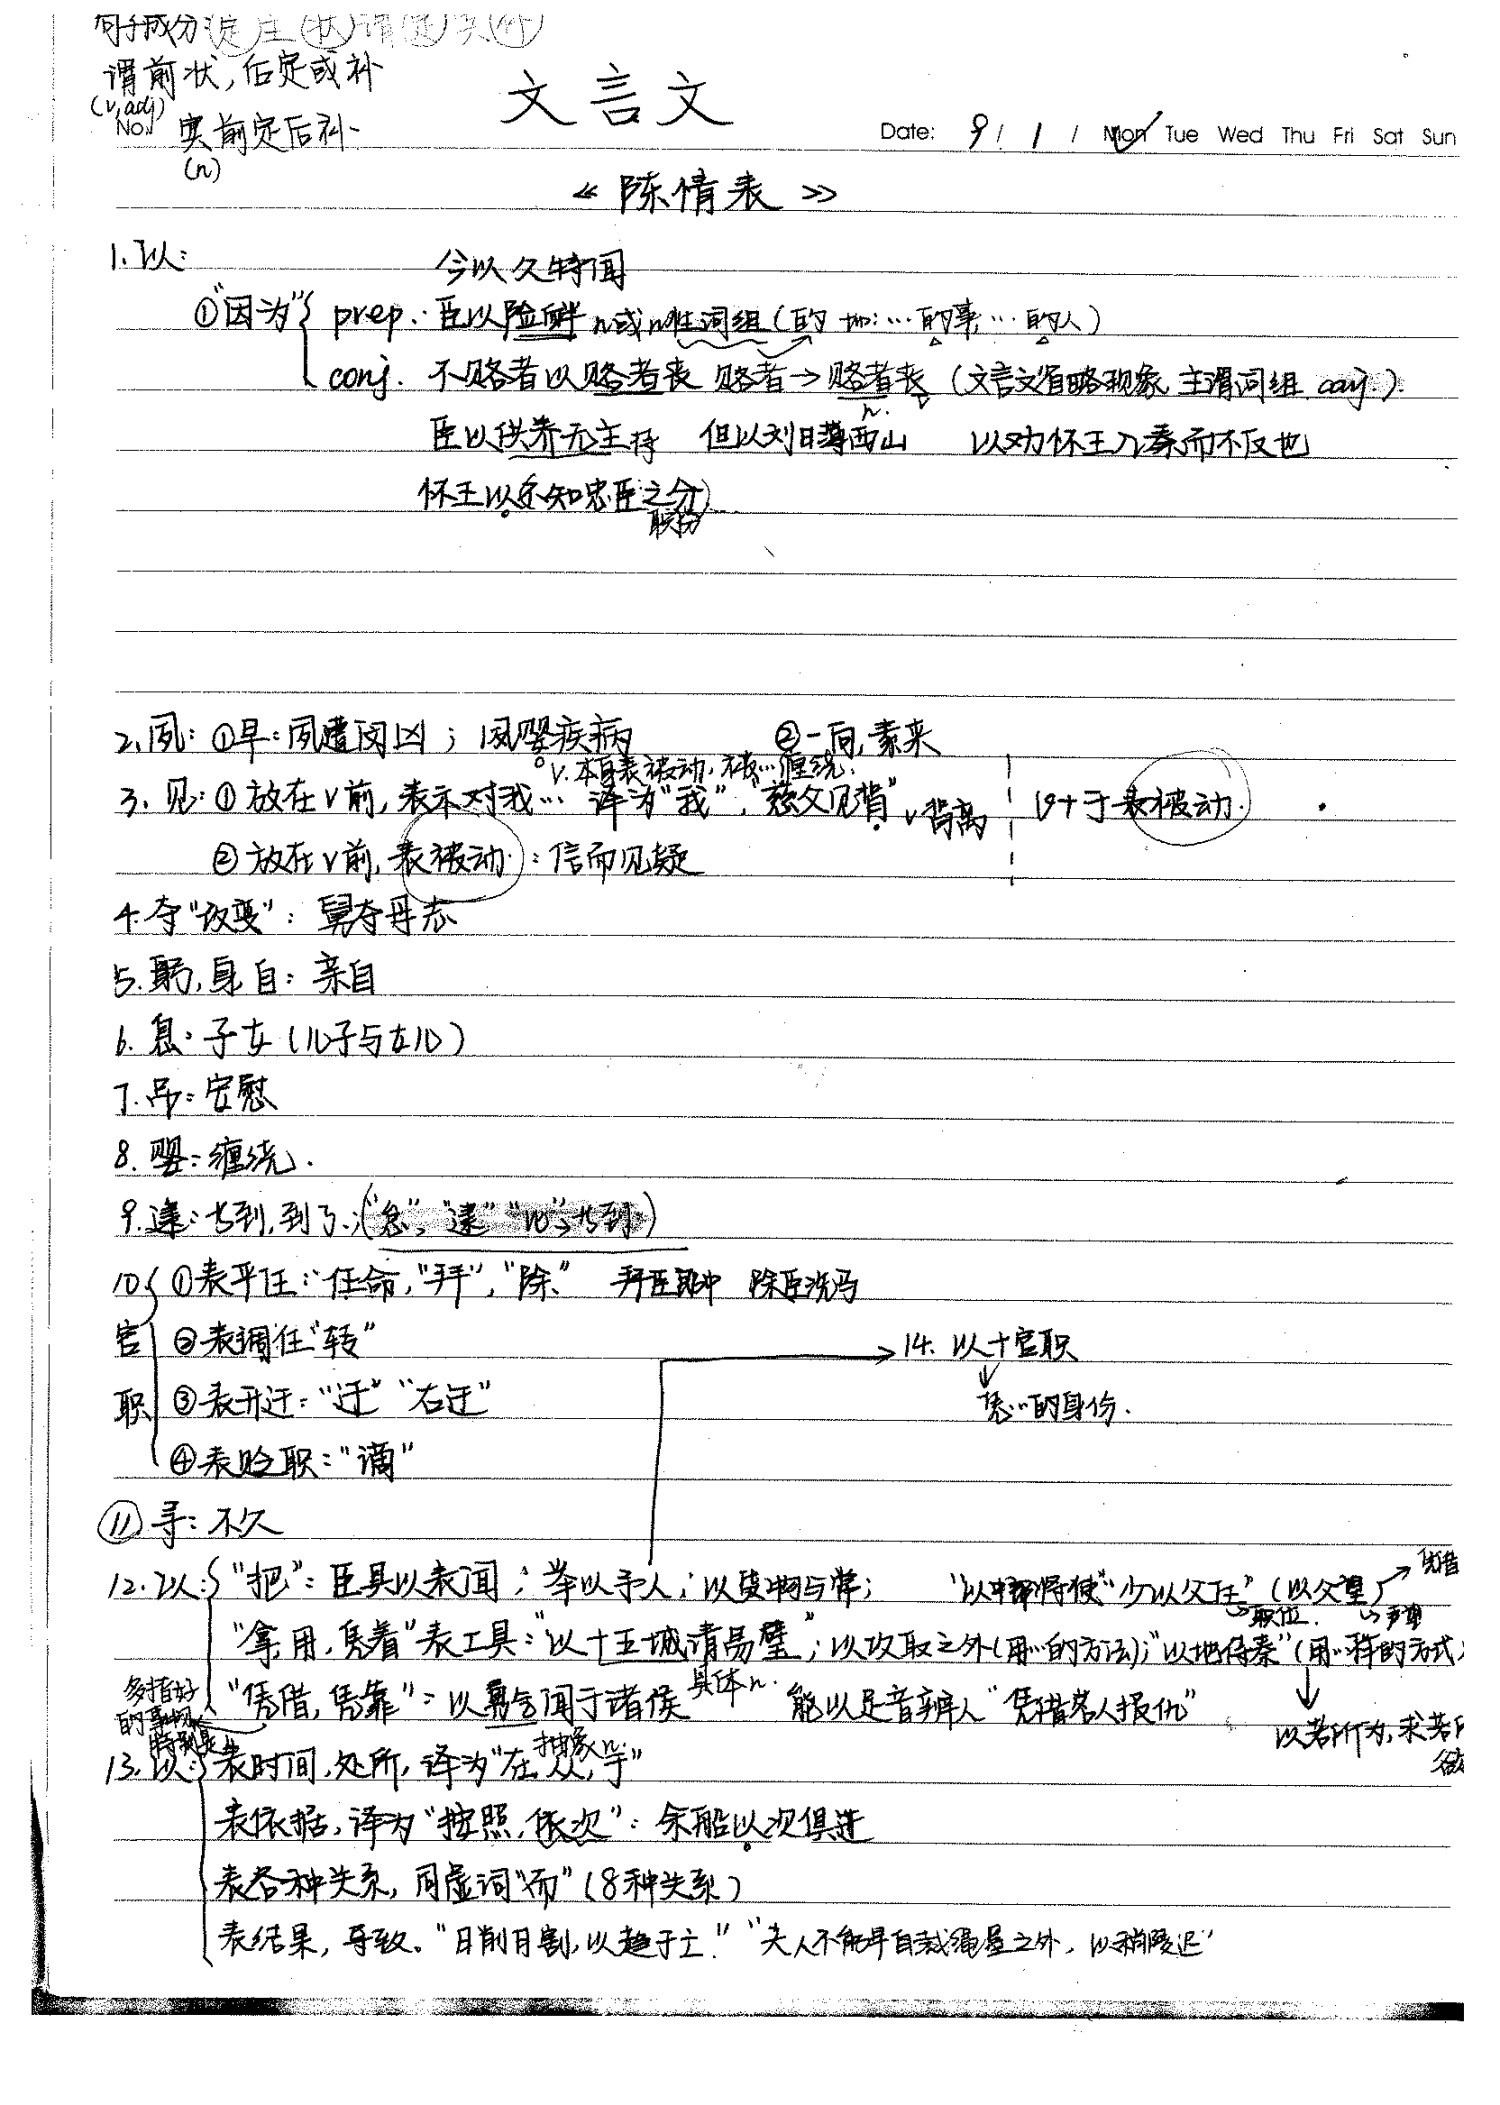 句子成分:(定)主(状)谓(定)宾(补)
谓前状,后定或补
(v,adj)
No.
宾前定后补
(n)
文言文
Date: 9 / 1 / Mon Tue Wed Thu Fri Sat Sun
《陈情表》
1.以:
今以久特闻
①"因为" prep.:臣以险衅 n或n性词组(的 如:…的事,…的人)
conj. 不赂者以赂者丧 赂者→赂者丧 (文言文省略现象 主谓词组 conj.)
n.
臣以供养无主 但以刘日薄西山 以劝怀王入秦而不反也
怀王以不知忠臣之分
职份
2.夙:①早:夙遭闵凶;夙婴疾病 ②一向,素来
v.本身表被动,被…缠绕.
3.见:①放在v前,表示对我… 译为"我","慈父见背" v背离 v+于表被动.
②放在v前,表被动:信而见疑
4.夺"改变":舅夺母志
5.躬,身自:亲自
6.息:子女(儿子与女儿)
7.吊:安慰
8.婴:缠绕.
9.逮:等到,到了.
10 ①表平任:任命,"拜","除" 拜臣郎中 除臣洗马
官 ②表调任"转"
14. 以+官职
职 ③表升迁:"迁" "右迁"
凭…的身份.
④表贬职:"谪"
⑪寻:不久
12.以: "把":臣具以表闻;举以予人; "少以父任"(以父望) 凭借
职位.
"拿,用,凭着"表工具:"以十五城请易璧";以攻取之外(用…的方法);"以地侍秦"(用…样的方式
具体n.
多指好的事物
"凭借,凭靠":以勇气闻于诸侯 能以足音辨人 "凭借客人报仇"
以若所为,求若所欲
抽象n.
13.以: 表时间,处所,译为"在,从,于"
表依据,译为"按照,依次":余船以次俱进
表各种关系,同虚词"而"(8种关系)
表结果,导致。"日削月割,以趋于亡" "夫人不能早自裁绳墨之外,以稍陵迟"